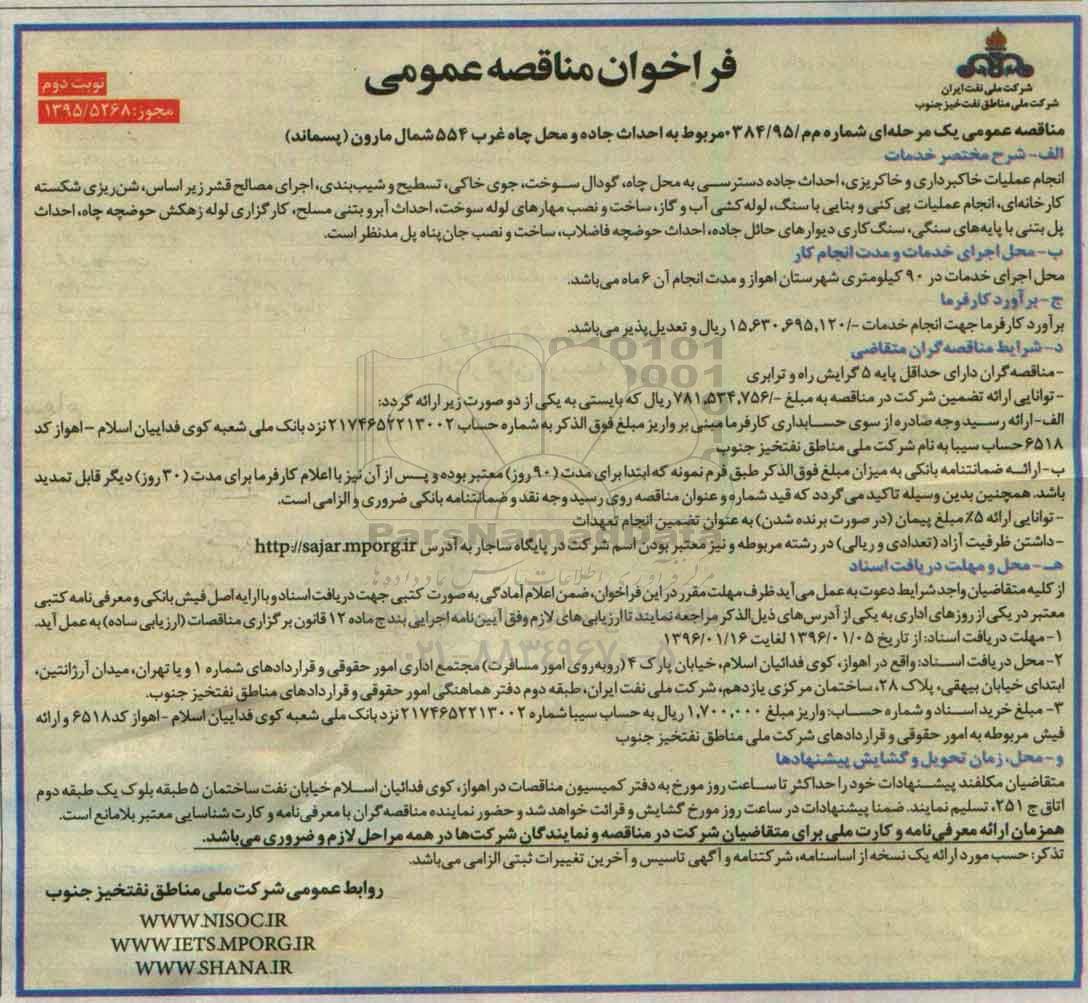 شرکت ملی نفت ایران
شرکت ملی مناطق نفت خیز جنوب
فراخوان مناقصه عمومی
نوبت دوم
مجوز: ۱۳۹۵/۵۲۶۸
مناقصه عمومی یک مرحله‌ای شماره م‌م/۰۳۸۴/۹۵ مربوط به احداث جاده و محل چاه غرب ۵۵۴ شمال مارون (پسماند)
الف- شرح مختصر خدمات
انجام عملیات خاکبرداری و خاکریزی، احداث جاده دسترسی به محل چاه، گودال سوخت، جوی خاکی، تسطیح و شیب‌بندی، اجرای مصالح قشر زیر اساس، شن‌ریزی شکسته
کارخانه‌ای، انجام عملیات پی کنی و بنایی با سنگ، لوله کشی آب و گاز، ساخت و نصب مهارهای لوله سوخت، احداث آبرو بتنی مسلح، کارگزاری لوله زهکش حوضچه چاه، احداث
پل بتنی با پایه‌های سنگی، سنگ کاری دیوارهای حائل جاده، احداث حوضچه فاضلاب، ساخت و نصب جان‌پناه پل مدنظر است.
ب- محل اجرای خدمات و مدت انجام کار
محل اجرای خدمات در ۹۰ کیلومتری شهرستان اهواز و مدت انجام آن ۶ ماه می‌باشد.
ج- برآورد کارفرما
برآورد کارفرما جهت انجام خدمات -/۱۵,۶۳۰,۶۹۵,۱۲۰ ریال و تعدیل‌پذیر می‌باشد.
د- شرایط مناقصه‌گران متقاضی
- مناقصه‌گران دارای حداقل پایه ۵ گرایش راه و ترابری
- توانایی ارائه تضمین شرکت در مناقصه به مبلغ -/۷۸۱,۵۳۴,۷۵۶ ریال که بایستی به یکی از دو صورت زیر ارائه گردد:
الف- ارائه رسید وجه صادره از سوی حسابداری کارفرما مبنی بر واریز مبلغ فوق الذکر به شماره حساب ۲۱۷۴۶۵۲۲۱۳۰۰۲ نزد بانک ملی شعبه کوی فداییان اسلام - اهواز کد
۶۵۱۸ حساب سیبا به نام شرکت ملی مناطق نفتخیز جنوب
ب- ارائه ضمانتنامه بانکی به میزان مبلغ فوق‌الذکر طبق فرم نمونه که ابتدا برای مدت (۹۰ روز) معتبر بوده و پس از آن نیز با اعلام کارفرما برای مدت (۳۰ روز) دیگر قابل تمدید
باشد. همچنین بدین وسیله تاکید می‌گردد که قید شماره و عنوان مناقصه روی رسید وجه نقد و ضمانتنامه بانکی ضروری و الزامی است.
- توانایی ارائه ۵٪ مبلغ پیمان (در صورت برنده شدن) به عنوان تضمین انجام تعهدات
- داشتن ظرفیت آزاد (تعدادی و ریالی) در رشته مربوطه و نیز معتبر بودن اسم شرکت در پایگاه ساجار به آدرس http://sajar.mporg.ir
هـ- محل و مهلت دریافت اسناد
از کلیه متقاضیان واجد شرایط دعوت به عمل می‌آید ظرف مهلت مقرر در این فراخوان، ضمن اعلام آمادگی به صورت کتبی جهت دریافت اسناد و با ارایه اصل فیش بانکی و معرفی‌نامه کتبی
معتبر در یکی از روزهای اداری به یکی از آدرس‌های ذیل‌الذکر مراجعه نمایند تا ارزیابی‌های لازم وفق آیین‌نامه اجرایی بند ج ماده ۱۲ قانون برگزاری مناقصات (ارزیابی ساده) به عمل آید.
۱- مهلت دریافت اسناد: از تاریخ ۱۳۹۶/۰۱/۰۵ لغایت ۱۳۹۶/۰۱/۱۶
۲- محل دریافت اسناد: واقع در اهواز، کوی فدائیان اسلام، خیابان پارک ۴ (روبه‌روی امور مسافرت) مجتمع اداری امور حقوقی و قراردادهای شماره ۱ و یا تهران، میدان آرژانتین،
ابتدای خیابان بیهقی، پلاک ۲۸، ساختمان مرکزی یازدهم، شرکت ملی نفت ایران، طبقه دوم دفتر هماهنگی امور حقوقی و قراردادهای مناطق نفتخیز جنوب.
۳- مبلغ خرید اسناد و شماره حساب: واریز مبلغ ۱,۷۰۰,۰۰۰ ریال به حساب سیبا شماره ۲۱۷۴۶۵۲۲۱۳۰۰۲ نزد بانک ملی شعبه کوی فداییان اسلام - اهواز کد ۶۵۱۸ و ارائه
فیش مربوطه به امور حقوقی و قراردادهای شرکت ملی مناطق نفتخیز جنوب
و- محل، زمان تحویل و گشایش پیشنهادها
متقاضیان مکلفند پیشنهادات خود را حداکثر تا ساعت روز مورخ به دفتر کمیسیون مناقصات در اهواز، کوی فدائیان اسلام خیابان نفت ساختمان ۵ طبقه بلوک یک طبقه دوم
اتاق ج ۲۵۱، تسلیم نمایند. ضمنا پیشنهادات در ساعت روز مورخ گشایش و قرائت خواهد شد و حضور نماینده مناقصه‌گران با معرفی‌نامه و کارت شناسایی معتبر بلامانع است.
همزمان ارائه معرفی‌نامه و کارت ملی برای متقاضیان شرکت در مناقصه و نمایندگان شرکت‌ها در همه مراحل لازم و ضروری می‌باشد.
تذکر: حسب مورد ارائه یک نسخه از اساسنامه، شرکتنامه و آگهی تاسیس و آخرین تغییرات ثبتی الزامی می‌باشد.
روابط عمومی شرکت ملی مناطق نفتخیز جنوب
WWW.NISOC.IR
WWW.IETS.MPORG.IR
WWW.SHANA.IR
ParsNamadData
۰۲۱-۸۸۳۴۹۶۷۰-۵